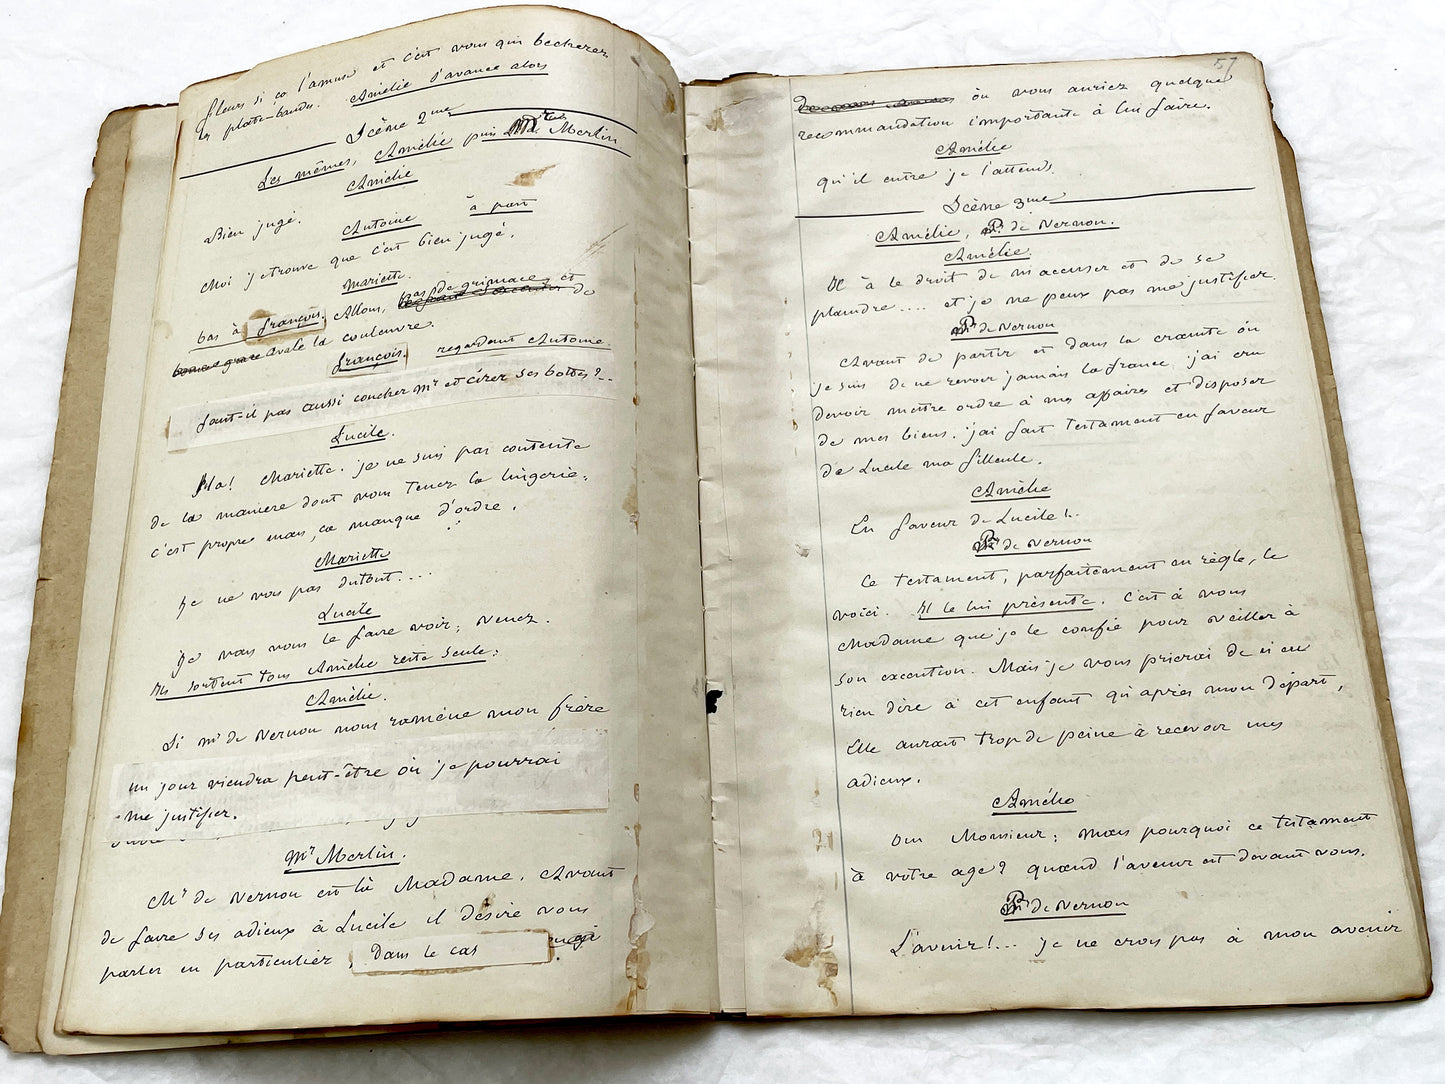 fleurs si ça l'amuse et c'est vous qui becherez
les plate-bandes. Amélie s'avance alors
Scène 2me
Les mêmes, Amélie puis Mr Merlin
Amélie
Bien jugé.
Antoine à part
Moi je trouve que c'est bien jugé.
Mariette.
bas à françois. Allons, pas de grimace et
avale la couleuvre.
françois. regardant Antoine
faut-il pas aussi coucher Mr et cirer ses bottes?..
Lucile.
Ha! Mariette. je ne suis pas contente
de la manière dont vous tenez la lingerie;
c'est propre mais, ça manque d'ordre.
Mariette
Je ne vois pas dutout....
Lucile
Je vais vous le faire voir; venez.
Ils sortent tous Amélie reste seule;
Amélie.
Si mr de Vernon nous ramène mon frère
un jour viendra peut-être où je pourrai
me justifier.
Mr Merlin.
Mr de Vernon est là Madame. Avant
de faire ses adieux à Lucile il désire vous
parler en particulier, dans le cas
57
où vous auriez quelque
recommandation importante à lui faire.
Amélie
qu'il entre je l'attends.
Scène 3me
Amélie, P. de Vernon.
Amélie
Il à le droit de m'accuser et de se
plaindre.... et je ne peux pas me justifier
P. de Vernon
Avant de partir et dans la crainte où
je suis de ne revoir jamais la france j'ai cru
devoir mettre ordre à mes affaires et disposer
de mes biens. j'ai fait testament en faveur
de Lucile ma filleule.
Amélie
En faveur de Lucile!..
P. de Vernon
Ce testament, parfaitement en règle, le
voici. Il le lui présente. C'est à vous
Madame que je le confie pour veiller à
son execution. Mais je vous prierai de n'en
rien dire à cet enfant qu'après mon départ,
Elle aurait trop de peine à recevoir mes
adieux.
Amélie
Oui Monsieur; mais pourquoi ce testament
à votre age? quand l'avenir est devant vous.
P. de Vernon
L'avenir!... je ne crois pas à mon avenir